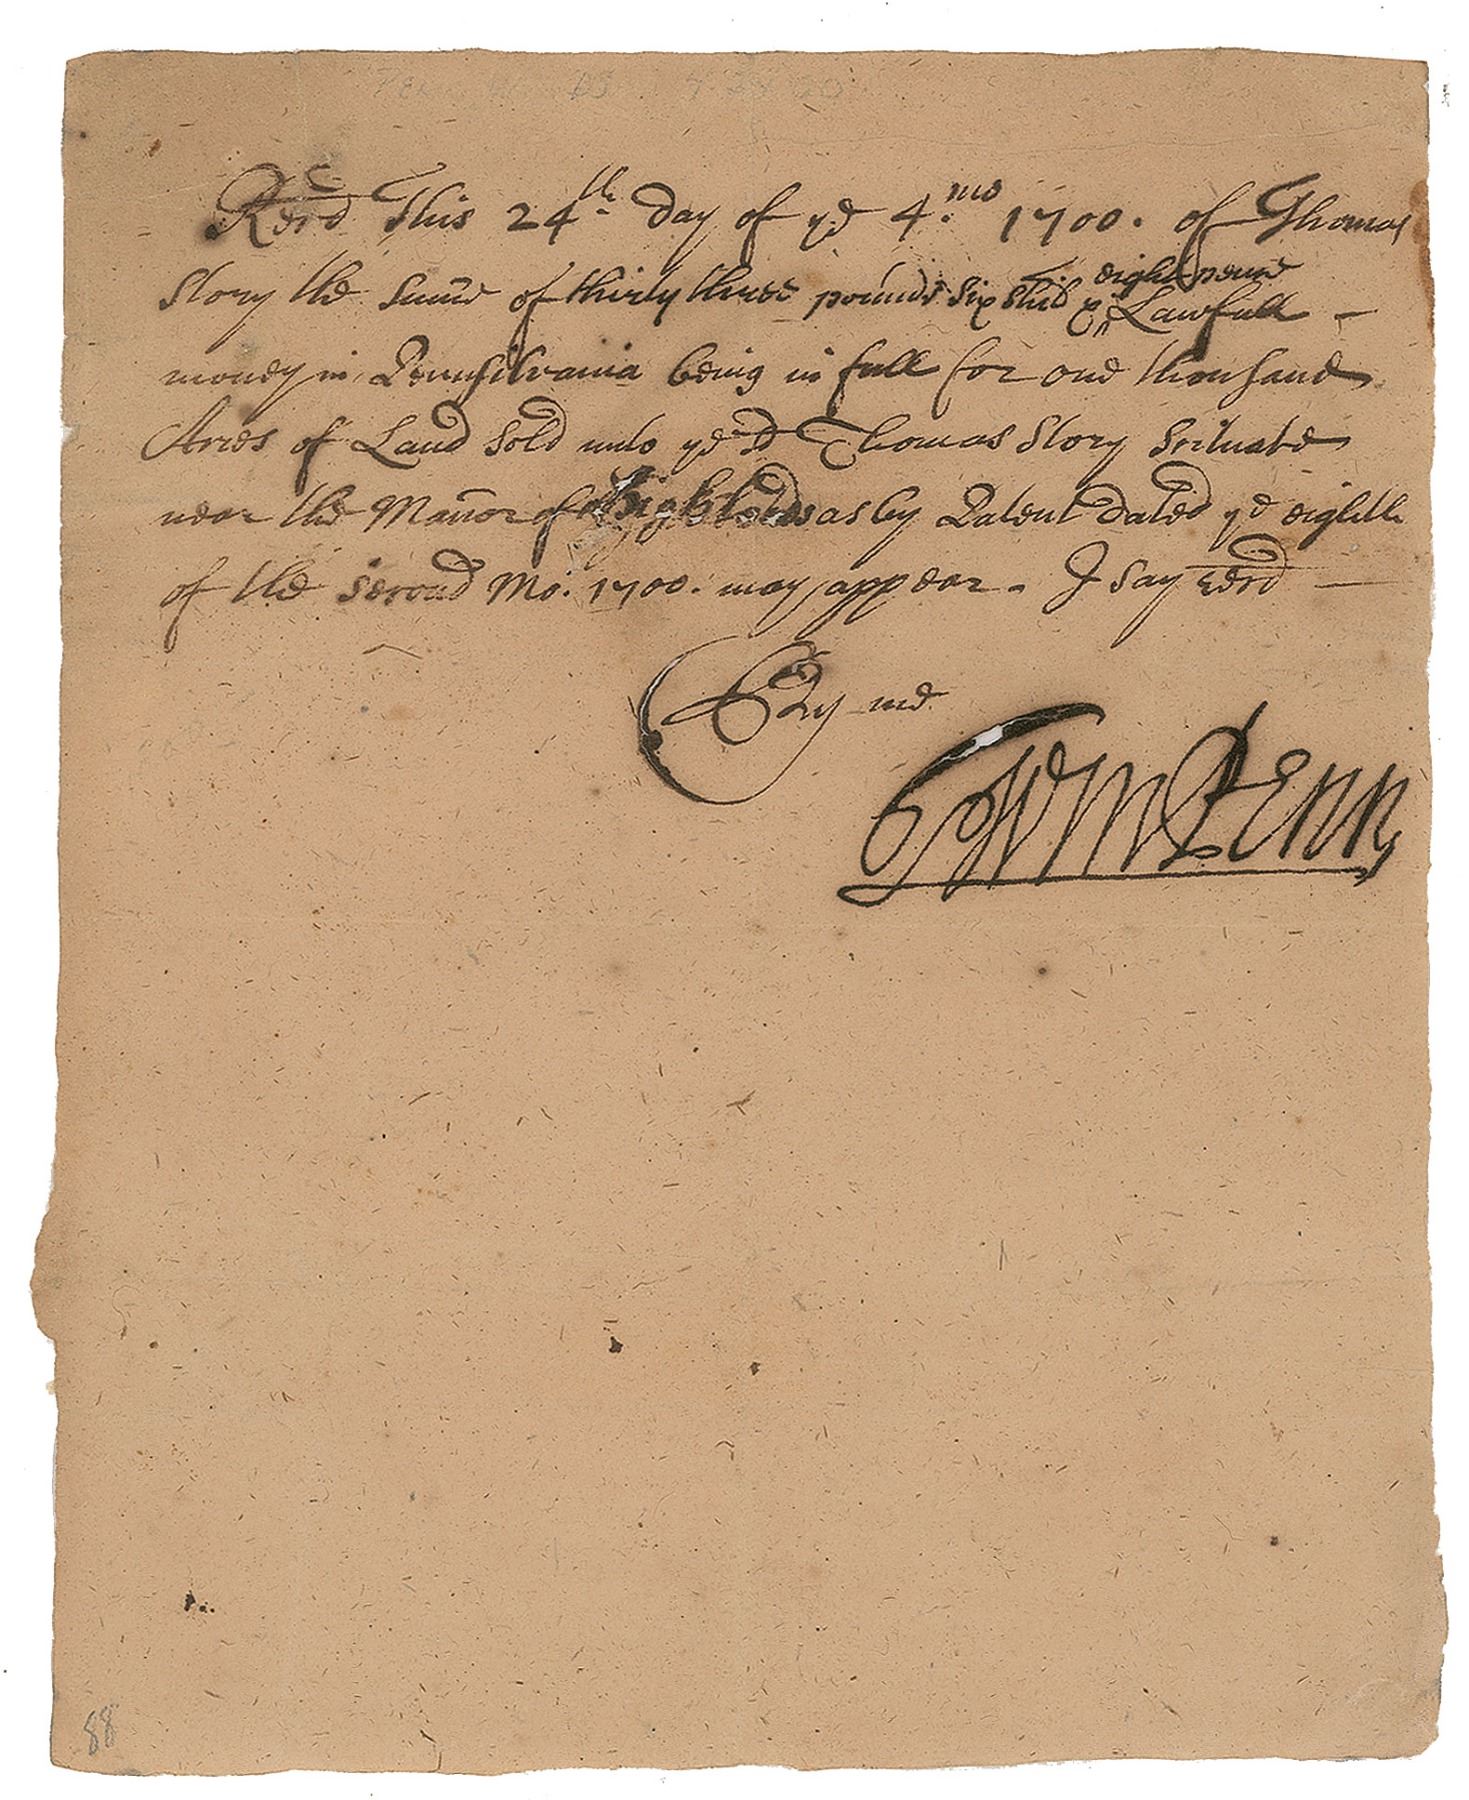 Recd This 24th day of ye 4.mo 1700. of Thomas
Story the Sume of thirty three pounds six Shil & eight pence Lawfull
money in Pennsilvania being in full for one thousand
Acres of Land Sold unto ye sd Thomas Story Scituate
near the Manor of Highlands as by Patent dated ye eighth
of the second Mo. 1700. may appear. I Say recd
By me
Wm Penn
88